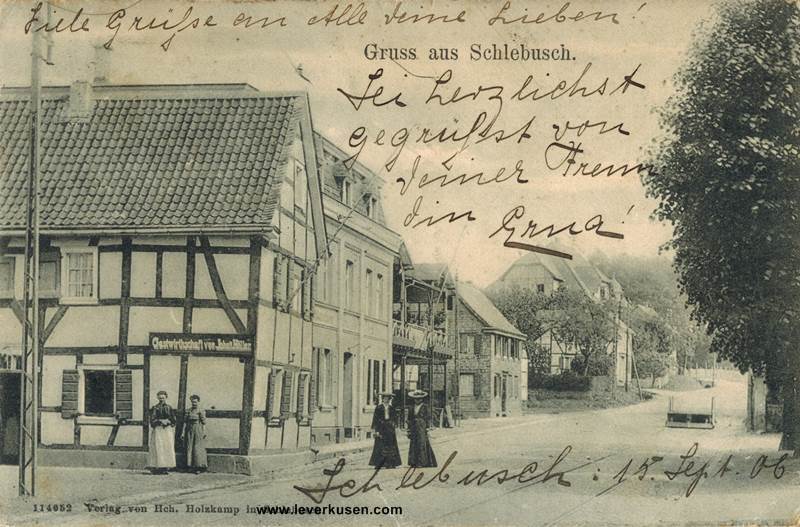 Viele Grüße an Alle deine Lieben!
Gruss aus Schlebusch.
Sei herzlichst
gegrüßt von
deiner Freun
din Erna!
Gastwirthschaft von
Schlebusch : 15. Sept. 06
114652 Verlag von Hch. Holzkamp in
www.leverkusen.com